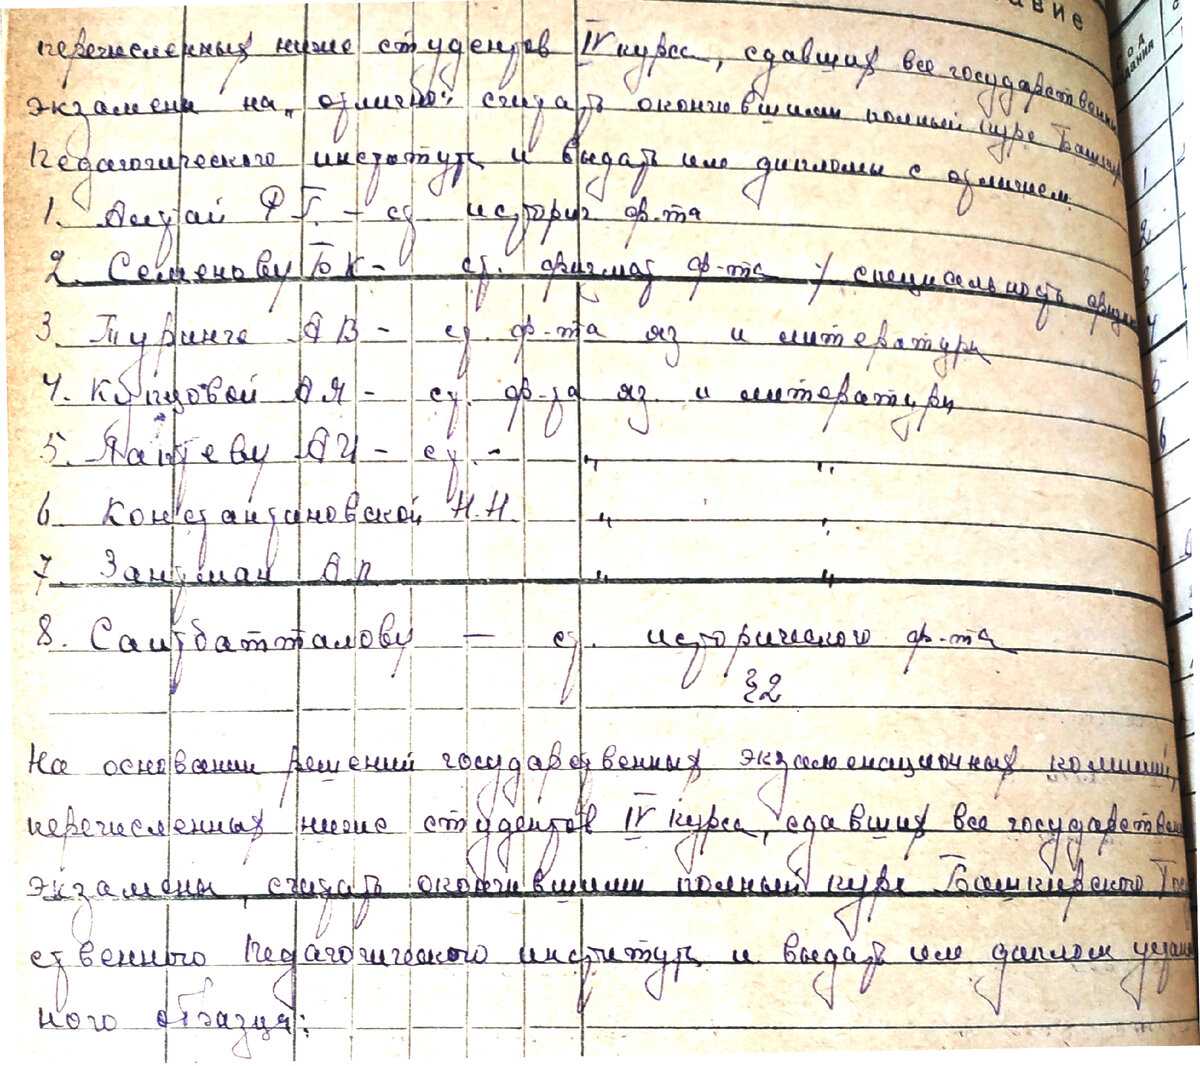 перечисленных ниже студентов IV курса, сдавших все государственны
экзамены на „отлично" считать окончившими полный курс Башкир
Педагогического института и выдать им дипломы с отличием.
1. Ф Г. – ст. историч ф-та
2. Семенову Б К – ст. физмат ф-та / специальность физик
3. Туринге А В – ст. ф-та яз и литературы
4. Купцовой А Я – ст. ф-та яз. и литературы
5. Лаптеву А И – ст. – " "
6 Константиновской Н.Н. " "
7. Зангман А П " "
8. Саитбатталову – ст. исторического ф-та
§2
На основании решений государственных экзаменационных комиссий,
перечисленных ниже студентов IV курса, сдавших все государствен
экзамены, считать окончившими полный курс Башкирского Гос
ственного Педагогического института и выдать им диплом устан
ного образца: